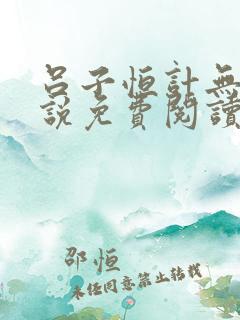 呂子恒計無
說免費閱讀
邵恒
未经同意禁止转载